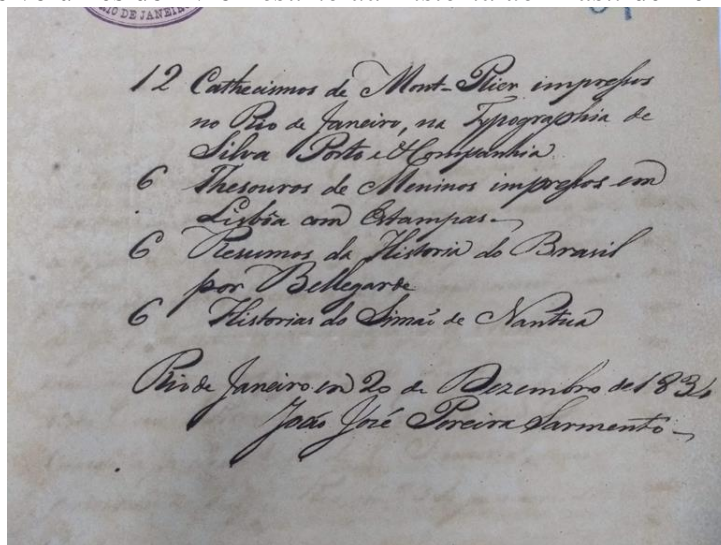 RIO DE JANEIRO
12 Cathecismos de Mont-Plier impressos
no Rio de Janeiro, na Typographia de
Silva Porto e Companhia
6 Thesouros de Meninos impressos em
Lisbôa com Estampas.
6 Resumos da Historia do Brasil
por Bellegarde
6 Historias do Simaõ de Nantua
Rio de Janeiro em 20 de Dezembro de 1834
João José Pereira Sarmento